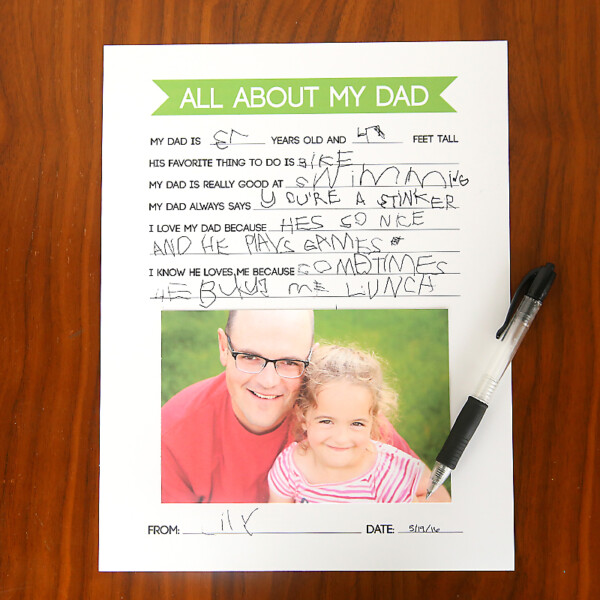 ALL ABOUT MY DAD
MY DAD IS YEARS OLD AND FEET TALL
HIS FAVORITE THING TO DO IS BIKE
MY DAD IS REALLY GOOD AT SWIMMING
MY DAD ALWAYS SAYS YOU'RE A STINKER
I LOVE MY DAD BECAUSE HES SO NICE
AND HE PLAYS GAMES
I KNOW HE LOVES ME BECAUSE SOMETIMES
HE BUYS ME LUNCH
FROM: Lily DATE: 5/19/16